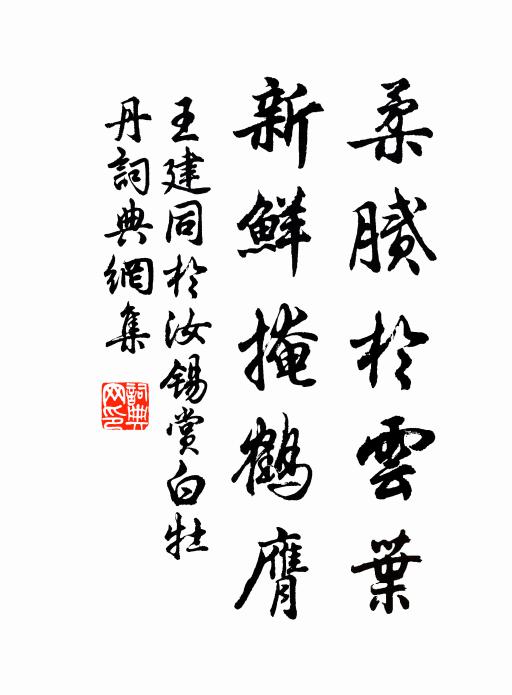 柔膩於雲葉
新鮮掩鶴膺
王建同於汝錫賞白牡
丹詞典網集
詞典
网印